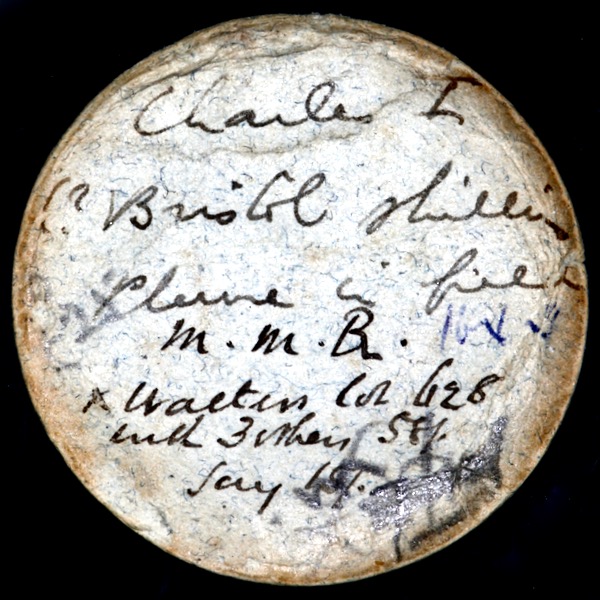 Charles I
(? Bristol shilling
Plume in field
M. M. B.
x Walters lot 628
with 3 others 58/.
say 15/.